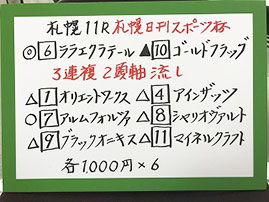 札幌11R 札幌日刊スポーツ杯
◎6 ララエクラテール ▲10 ゴールドフラッグ
3連複 2頭軸流し
△1 オリエントワークス △4 アインザッツ
○7 アルムフォルツァ △8 シャリオヴァルト
△9 ブラックオニキス △11 マイネルクラフト
各1,000円×6